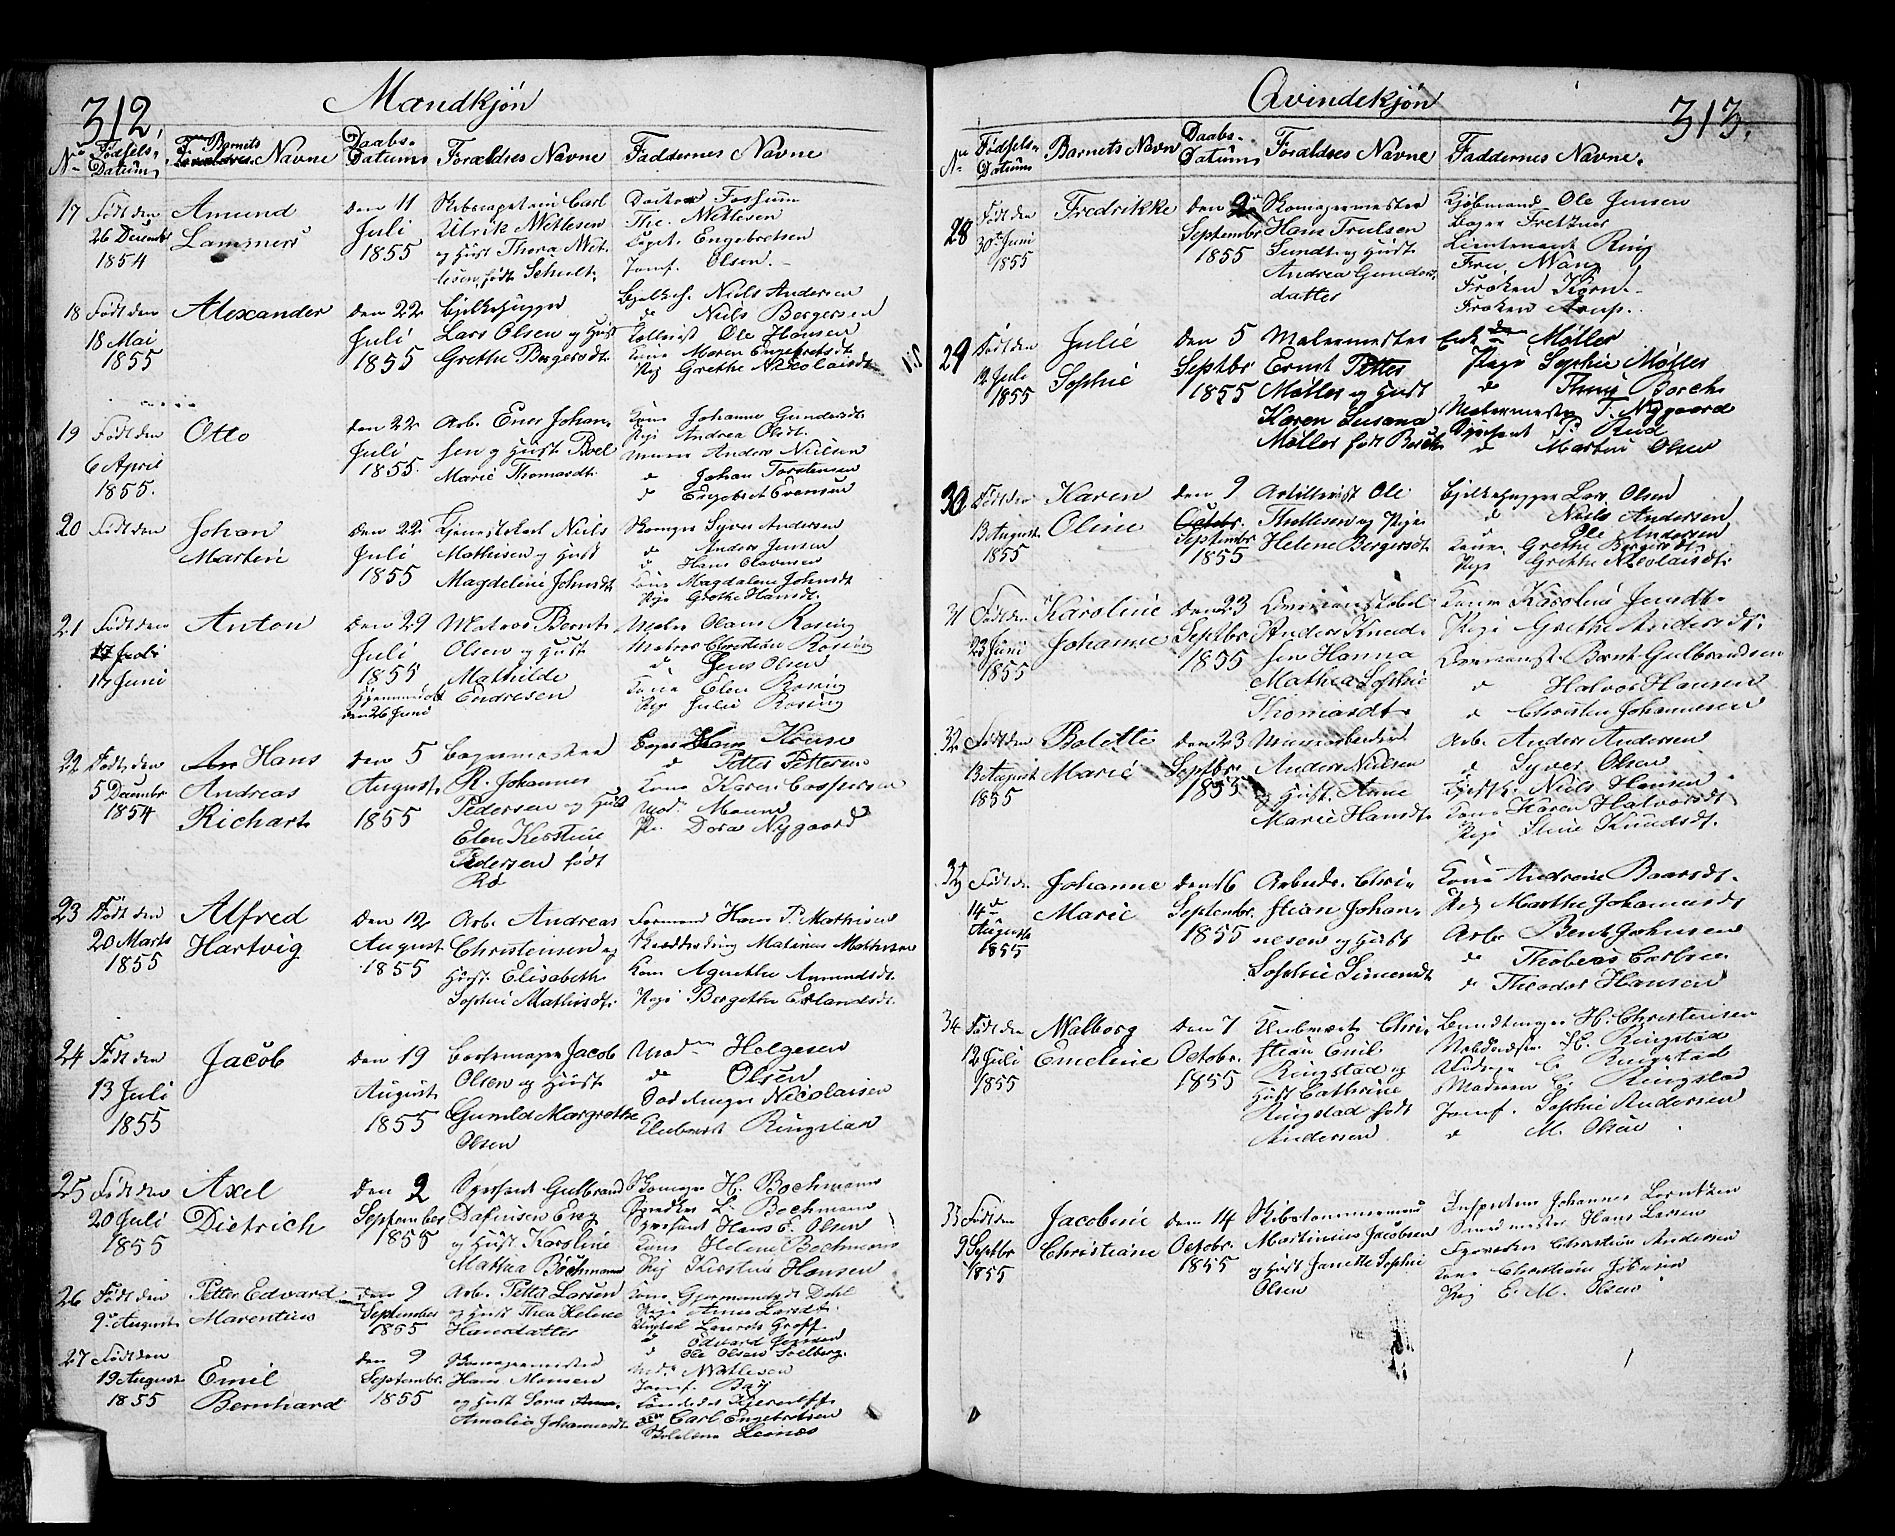 312.
Mandkjøn
No Fødsels-Datum Barnets Navne Daabs-Datum Forældres Navne Faddernes Navne
17 Født den 26 Decembr 1854
Amund Lammers
den 11 Juli 1855
Skibscapitain Carl
Ulrik Wetlesen
og Hust Thora Wet-
lesen, født Schult
Doctor Fossum
The. Wetlesen
Capt. Engebretsen
Jomf. Olsen
18 Født den 18 Mai 1855
Alexander
den 22 Juli 1855
Bjelkehugger
Lars Olsen og Hust
Grethe Bergersdt.
Bjelkeh. Niels Andersen
do Niels Bergersen
Ole Hansen
Kone Maren Engebretsdt
Pig Grethe Nicolaisdt
19 Født den 6 April 1855.
Otto
den 22 Juli 1855.
Arb. Ener Johan-
sen og Hust Boel
Marie Thomasdt.
Kone Johanne Gundersdt
Pige Andrea Olsdt.
Anders Nielsen
do Johan Torstensen
do Engebret Evensen
20 Født den
Johan Martin
den 22 Juli 1855
Niels
Mathisen og Hust
Magdeline Johnsdt
Skomgr Syver Andersen
do Anders Jensen
do Hans Olavesen
Kone Magdalene Johnsdt
Pige Grethe Hansdt.
21 Født den 14 Juni
Anton
den 29 Juli 1855
Hjemmedøbt
den 26 Juni
Matros Bernt
Olsen og Hust
Mathilde
Endresen
Maler Olaus Rosing
Matros Christian Rosing
do Jens Olsen
Kone Elen Rosing
Pige Julie Rosing
22 Født den 5 Decembr 1854
Hans
Andreas
Richart
den 5 August 1855
Bagermester
R. Johannes
Pedersen og Hust
Elen Kirstine
Pedersen født
Rø
Bager Hans Kruse
do Petter Pettersen
Kone Karen Caspersen
Mad.
Pi. Dora Nygaard
23 Født den 20 Marts 1855
Alfred Hartvig
den 12 August 1855
Arb. Andreas
Christensen og
Hust Elisabeth
Sophie Mathisdt.
Formand Hans P. Mathisen
Skrædderdreng Matinius Mathisen
Kone Agnethe Amundsdt
Pige Bergethe Erlandsdt.
24 Født den 13 Juli 1855
Jacob
den 19 August 1855
Jacob
Olsen og Hust
Gunild Margrethe
Olsen
Mad. Helgesen
do Olsen
Nicolaisen
Ringstad
25 Født den 20 Juli 1855
Axel Dietrich
den 2 September 1855
Sersant Gulbrand
Dafinsen Eeg
og Hust Karoline
Mathea Bochmann
Skomagr H. Bochmann
Snedker L. Bochmann
Sersant Hans E. Olsen
Kone Helene Bochmann
Pig Kirstine Hansen
26 Født den 9 August
Petter Edvard Marentius
den 9 September 1855
Arb. Petter Larsen
og Hust Thea Helene
Hansdatter
Kone Dahl
Pige Anne Larsdt.
Laurets Groff
do Edvard Jensen
do Ole Olsen Solberg.
27 Født den 19 August 1855
Emil Bernhard
den 9 Septembr. 1855
Skomagermester
Hans Monsen
og Hust
Amalia Johannesdt.
Mad. Watlesen
Jomf. Bay
Carl Engebretsen
313.
Qvindekjøn
No Fødsels-Datum Barnets Navn Daabs-Datum Forældres Navne Faddernes Navne.
28 Født den 30te Juni 1855
Fredrikke
den 2 Septembr 1855
Skomagermester
Hans Trulsen
Sundt og Hust
Andrea Gunders-
datter
Kjøbmand Ole Jensen
Bager Fretzner
Lieutenant Ring
Fru Wang
Frøken Kørn
Frøken Arup.
29 Født den 12 Juli 1855
Julie Sophie
den 5 Septbr 1855
Malermester
Ernst Petter
Møller og Hust
Karen Susana
Møller født Borch
Enke Møller
Pige Sophie Møller
do Borch
Malermester T. Nygaard
Sersant P. Rud
do Martin Olsen
30 Født den 13 August 1855
Karen Oline
den 9 Septembr 1855
Artillerist Ole
Thollesen og Pige
Helene Bergersdt.
Bjelkehugger Lars Olsen
do Niels Andersen
Ole Andersen
Kone Grethe Bergersdt.
Pige Grethe Nicolaisdt.
31 Født den 23 Juni 1855
Karoline Johanne
den 23 Septbr 1855
Anders Knud-
sen Hanna
Mathea Sophie
Thomasdt.
Kone Karoline Jensdt.
Pige Grethe Andersdt.
Bernt Gulbrandsen
do Halvor Hansen
do Christen Johannesen
32 Født den 13 August 1855
Bolette Marie
den 23 Septbr. 1855
Anders Nielsen
og Hust. Anne
Marie Hansdt.
Arb. Anders Andersen
do Syver Olsen
Niels Hansen
Kone Karen Halvorsdt
Pige Stine Knudsdt.
33 Født d. 14de August 1855
Johanne Marie
den 16 Septembr. 1855
Arbeidr. Chri-
stian Johan-
nesen og Hust
Sophie Simensdt
Kone Andrine Baarsdt.
Pig Marthe Johannesdt
Arb. Bent Johnsen
do Thobias Carlsen
do Theodor Hansen
34 Født den 12 Juli 1855
Walborg Emeline
den 7 Octobr. 1855
Klubvært Chri-
stian Emil
Ringstad og
Hust Cathrine
Ringstad født
Andersen
H. Christensen
Ringstad
Ringstad
Madam E. Ringstad
Jomf. Sophie Andersen
do M. Olsen
35 Født den 9 Septbr 1855
Jacobine Christiane
den 14 Octobr. 1855
Skibstømmermand
Martinius Jacobsen
og Hust Janette Sophie
Olsen
Johannes Lorntzen
Smedmester Hans Larsen
Christian Andersen
Kone
Pig E. M. Olsen